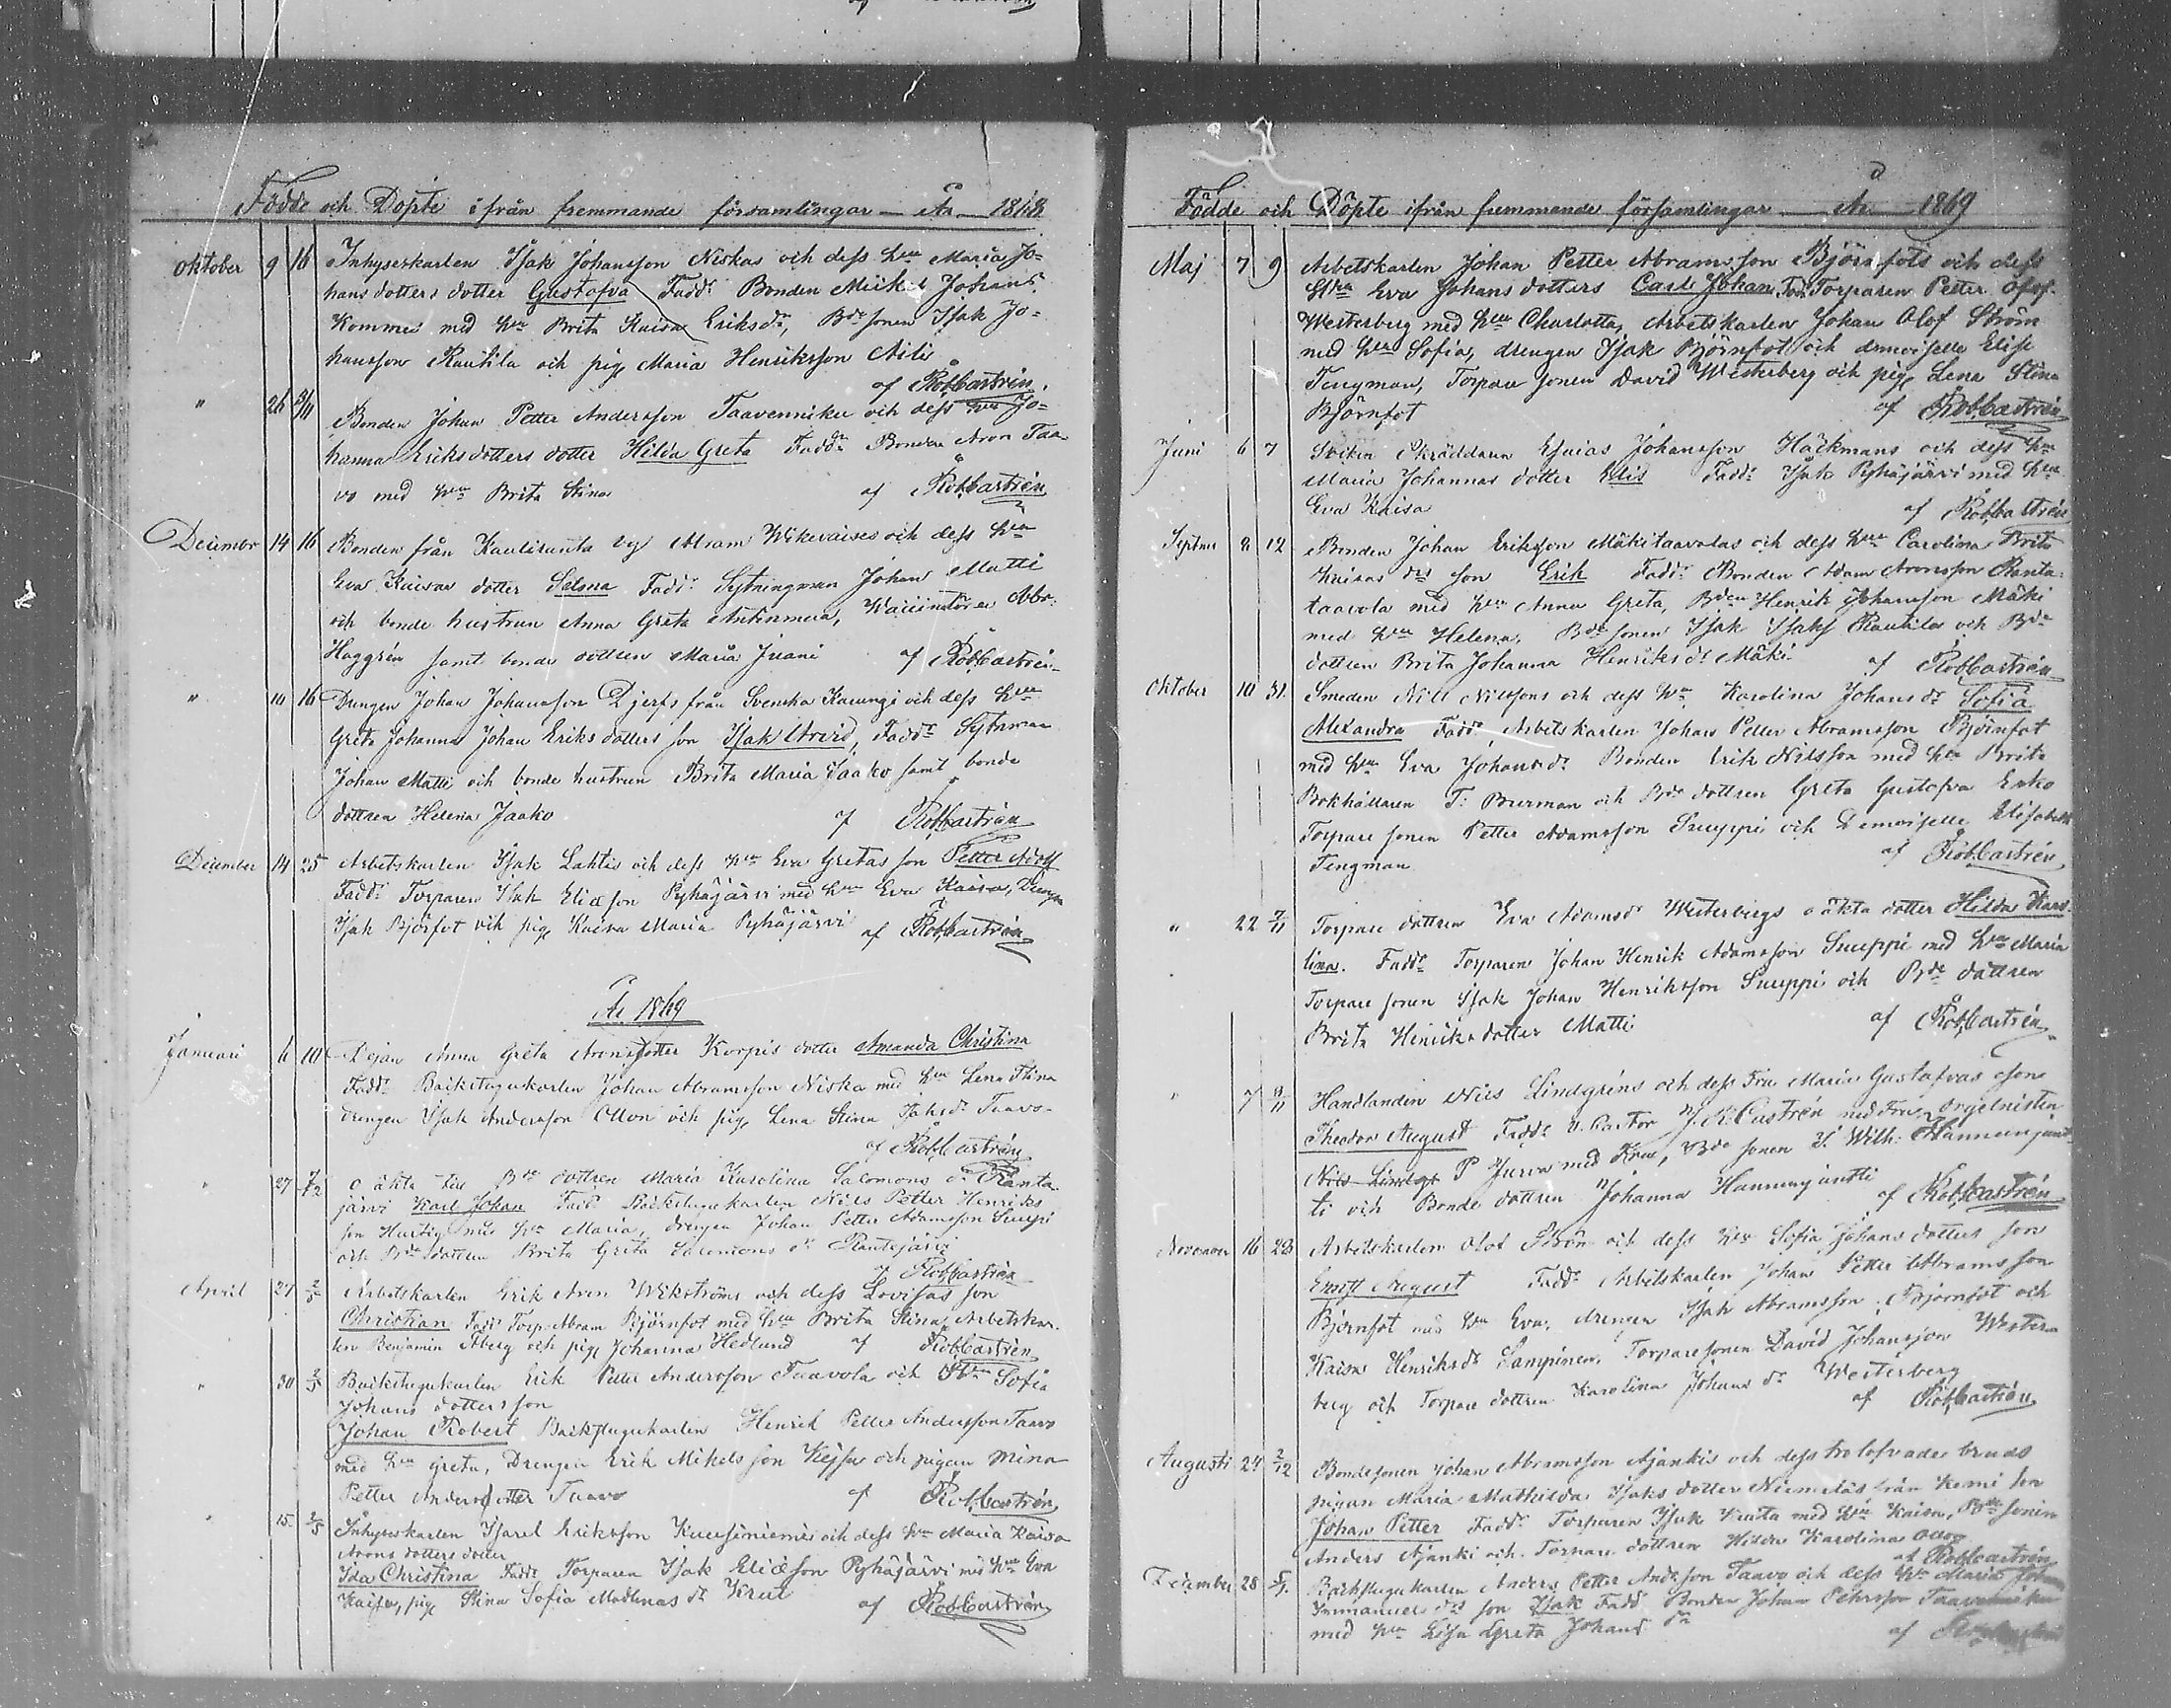 Födde och Döpte ifrån fremmande församlingar — År — 1868
Oktober 9 18 Inhyseskarlen Isak Johansson Niskas och dess hru Maria Jo-
hans dotters dotter Gustafva Fadd: Bonden Mickel Johans
Kommes med hru Brita Kaisa Eriksdr, Bde sonen Isak Jo-
hansson Rautila och pig Maria Henriksson Aili
af Rob Castrén
" 26 3/11 Bonden Johan Petter Andersson Taavenniku och dess hru Jo-
hanna Eriksdotters dotter Hilda Greta Fadd: Bonden Aron Taa-
vo med hru Brita Stina af Rob Castrén
December 14 16 Bonden från Kauliranta by Abram Wikevaises och dess hru
Eva Kaisas dotter Selma Fadd: Sytningman Johan Matti
och bonde hustrun Anna Greta Antinmaa, Abr:
Haggrén samt bonde dottren Maria Juani af Rob Castrén
" 10 16 Drengen Johan Johansson Djerfs från Svenska Karungi och dess hru
Greta Johanna Johan Eriksdotters son Isak Arvid, Fadd: Sytnman
Johan Matti och bonde hustrun Brita Maria Jaako samt bonde
dottren Helena Jaako af Rob Castrén
December 14 25 Arbetskarlen Isak Lahtis och dess hru Eva Gretas son Petter Adolf
Fadd: Torparen Isak Eliasson Pyhäjärvi med hru Eva Kaisa, Drengen
Isak Björfot och pig Kaisa Maria Pyhäjärvi af Rob Castrén
År 1869
Januari 6 10 Dejan Anna Greta Aronsdotter Korpis dotter Amanda Christina
Fadd: Backstugukarlen Johan Abramsson Niska med hru Lena Stina
drengen Isak Andersson Ollon och pig Lena Stina Isaksdr Taavo-
af Rob Castrén
" 27 7/2 Oäkta till Bde dottren Maria Karolina Salomons dr Ranta
järvi Karl Johan Fadd: Backstugukarlen Nils Petter Henriks
son Hurtig med hru Maria, drengen Johan Petter Adamsson Sueppi
och Bde dottren Brita Greta Salomons dr Rantajärvi
af Rob Castrén
April 27 2/5 Arbetskarlen Erik Aron Wikströms och dess Lovisas son
Christian Fadd: Torp: Abram Björnfot med hru Brita Stina, Arbetskar-
len Benjamin Åberg och pig Johanna Hedlund af Rob Castrén
" 30 2/5 Backstugukarlen Erik Petter Andersson Taavola och Hru Sofia
Johans dotters son
Johan Robert Backstugukarlen Henrik Petter Andersson Taavo
med hru Greta, Drengen Erik Mikelsson Kejsu och pigan Mina
Petter Andersdotter Taavo af Rob Castrén
" 15 2/5 Inhyseskarlen Isarel Eriksson Kuusiniemis och dess hru Maria Kaisa
Arons dotters dotter
Ida Christina Fadd: Torparen Isak Eliasson Pyhäjärvi med hru Eva
Kaisa, pig Stina Sofia Madlenas dr Kruu af Rob Castrén
Födde och Döpte ifrån fremmande församlingar — År — 1869
Maj 7 9 Arbetskarlen Johan Petter Abramsson Björnfots och dess
hru Eva Johans dotters Carl Johan Fad: Torparen Petter Olof
Westerberg med hru Charlotta, Arbetskarlen Johan Olof Ström
med hru Sofia, drengen Isak Björnfot och demoiselle Elise
Tengman, Torpare sonen David Westerberg och pig Lena Stina
Björnfot af Rob Castrén
Juni 6 7 Skräddaren Esaias Johansson Häckmans och dess hru
Maria Johannas dotter Elis Fadd: Isak Pyhäjärvi med hru
Eva Kaisa af Rob Castrén
Septmr 8 12 Bonden Johan Eriksson Mäkitaavolas och dess hru Carolina Brita
Kaisas drs son Erik Fadd: Bonden Adam Aronsson Ranta-
taavola med hru Anna Greta, Bden Henrik Johansson Mäki
med hru Helena, Bde sonen Isak Isaks Rautila och Bde
dottren Brita Johanna Henriksdr Mäki af Rob Castrén
Oktober 10 31. Smeden Nils Nilssons och dess hru Karolina Johansdr Sofia
Alexandra Fadd: Arbetskarlen Johan Petter Abramsson Björnfot
med hru Eva Johansdr Bonden Erik Nilsson med hru Brita
Bokhållaren T: Burman och Bde dottren Greta Gustafva Erko
Torpare sonen Petter Adamsson Sueppi och Demoiselle Elisabeth
Tengman af Rob Castrén
" 22 7/11 Torpare dottren Eva Adamsdr Westerbergs oäkta dotter Hilda Karo-
lina. Fadd: Torparen Johan Henrik Adamsson Sueppi med hru Maria
Torpare sonen Isak Johan Henriksson Sueppi och Bde dottren
Brita Henriksdotter Matti af Rob Castrén
" 7 8/11 Handlanden Nils Lindgréns och dess Fru Maria Gustafvas son
Theodor August Fadd: V. Pastor J. R. Castrén med Fru, orgelnisten
Nils Lindgr P Jurva med Fru, Bde sonen I. Wilh: Hannunjunt-
ti och Bonde dottren Johanna Hannunjuntti af Rob Castrén
November 16 28 Arbetskarlen Olof Ström och dess hru Sofia Johans dotters son
Ernst August Fadd: Arbetskarlen Johan Petter Abramsson
Björnfot med hru Eva, drengen Isak Abramsson Björnfot och
Kaisa Henriksdr Lampinen, Torparesonen David Johansson Wester-
berg och Torpare dottren Karolina Johans dr Westerberg
af Rob Castrén
Augusti 24 2/12 Bondesonen Johan Abramsson Ajankis och dess trolofvade bruds
pigan Maria Mathilda Isaks dotter Niemeläs från Kemi son
Johan Petter Fadd: Torparen Isak Krata med hru Kaisa, Bde sonen
Anders Ajanki och Torpare dottren Hilda Karolina
af Rob Castrén
December 28 Backstugukarlen Anders Petter Andsson Taavo och dess hru Maria
Immanuels drs son Isak Fadd Bonden Johan Pehrsson Taavenniku
med hru Lisa Greta Johans dr af